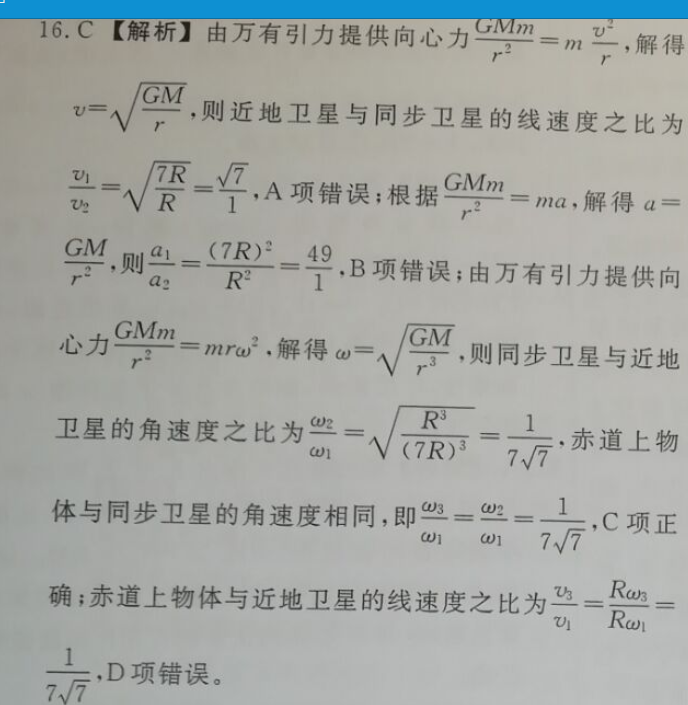 16. C 【解析】由万有引力提供向心力 \frac{GMm}{r^2}=m\frac{v^2}{r},解得
v=\sqrt{\frac{GM}{r}},则近地卫星与同步卫星的线速度之比为
\frac{v_1}{v_2}=\sqrt{\frac{7R}{R}}=\frac{\sqrt{7}}{1},A 项错误;根据\frac{GMm}{r^2}=ma,解得 a=
\frac{GM}{r^2},则\frac{a_1}{a_2}=\frac{(7R)^2}{R^2}=\frac{49}{1},B 项错误;由万有引力提供向
心力\frac{GMm}{r^2}=mrω^2,解得 ω=\sqrt{\frac{GM}{r^3}},则同步卫星与近地
卫星的角速度之比为\frac{ω_2}{ω_1}=\sqrt{\frac{R^3}{(7R)^3}}=\frac{1}{7\sqrt{7}},赤道上物
体与同步卫星的角速度相同,即\frac{ω_3}{ω_1}=\frac{ω_2}{ω_1}=\frac{1}{7\sqrt{7}},C 项正
确;赤道上物体与近地卫星的线速度之比为\frac{v_3}{v_1}=\frac{Rω_3}{Rω_1}=
\frac{1}{7\sqrt{7}},D 项错误。